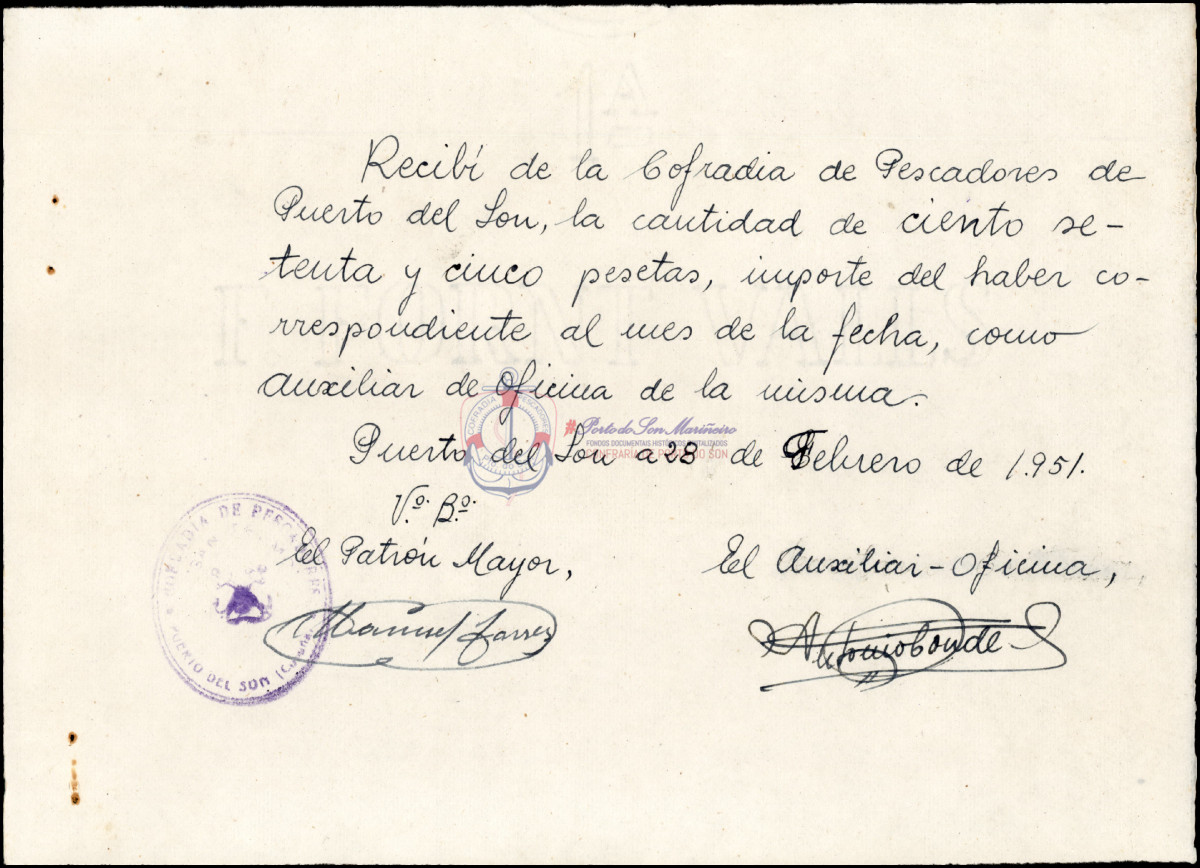 Recibí de la Cofradia de Pescadores de
Puerto del Son, la cantidad de ciento se-
tenta y cinco pesetas, importe del haber co-
rrespondiente al mes de la fecha, como
auxiliar de Oficina de la misma.
#Porto do Son Mariñeiro
FONDOS DOCUMENTAIS HISTÓRICOS DIXITALIZADOS
CONFRARÍA DE PORTO DO SON
Puerto del Son a 28 de Febrero de 1.951.
Vº. Bº.
El Patrón Mayor,
El Auxiliar-Oficina,
COFRADIA DE PESCADORES
PUERTO DEL SON (Coruña)
Manuel
Antonio Conde